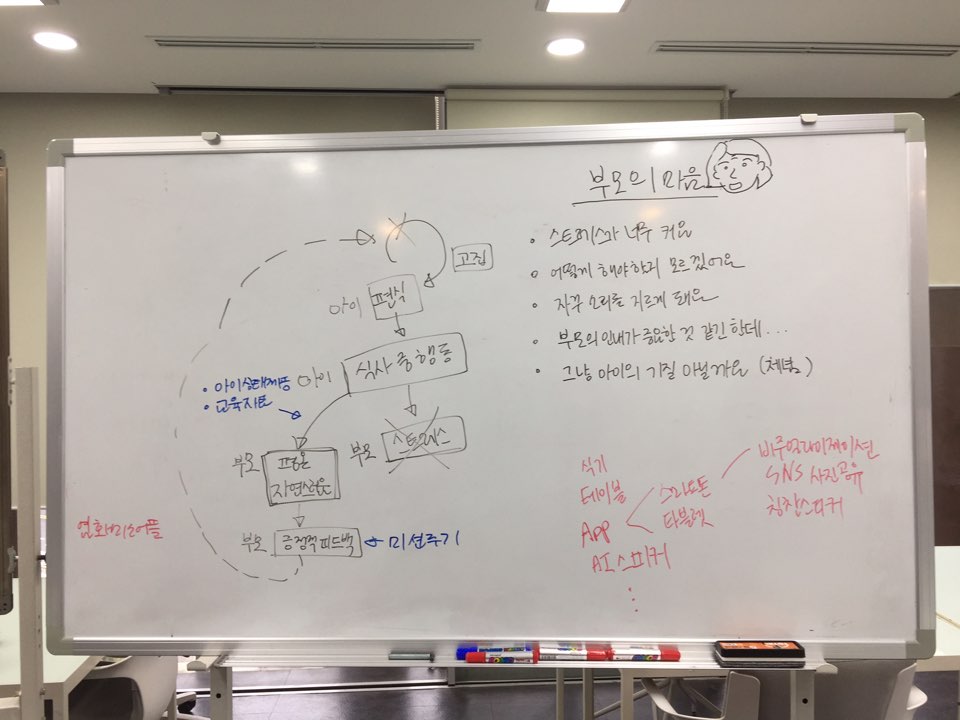 부모의 마음
• 스트레스가 너무 커요
• 어떻게 해야할지 모르겠어요
• 자꾸 소리를 지르게 돼요
• 부모의 인내가 중요한 것 같긴 한데...
• 그냥 아이의 기질 아닐까요 (체념)
고집
아이 편식
아이 식사 중 행동
• 아이상태체크
• 교육자료
부모 스트레스
부모 평온
자연스러운
부모 긍정적 피드백
미션주기
식기
테이블
APP
AI스피커
⋮
스마트폰
타블렛
비주얼라이제이션
SNS 사진공유
칭찬스티커